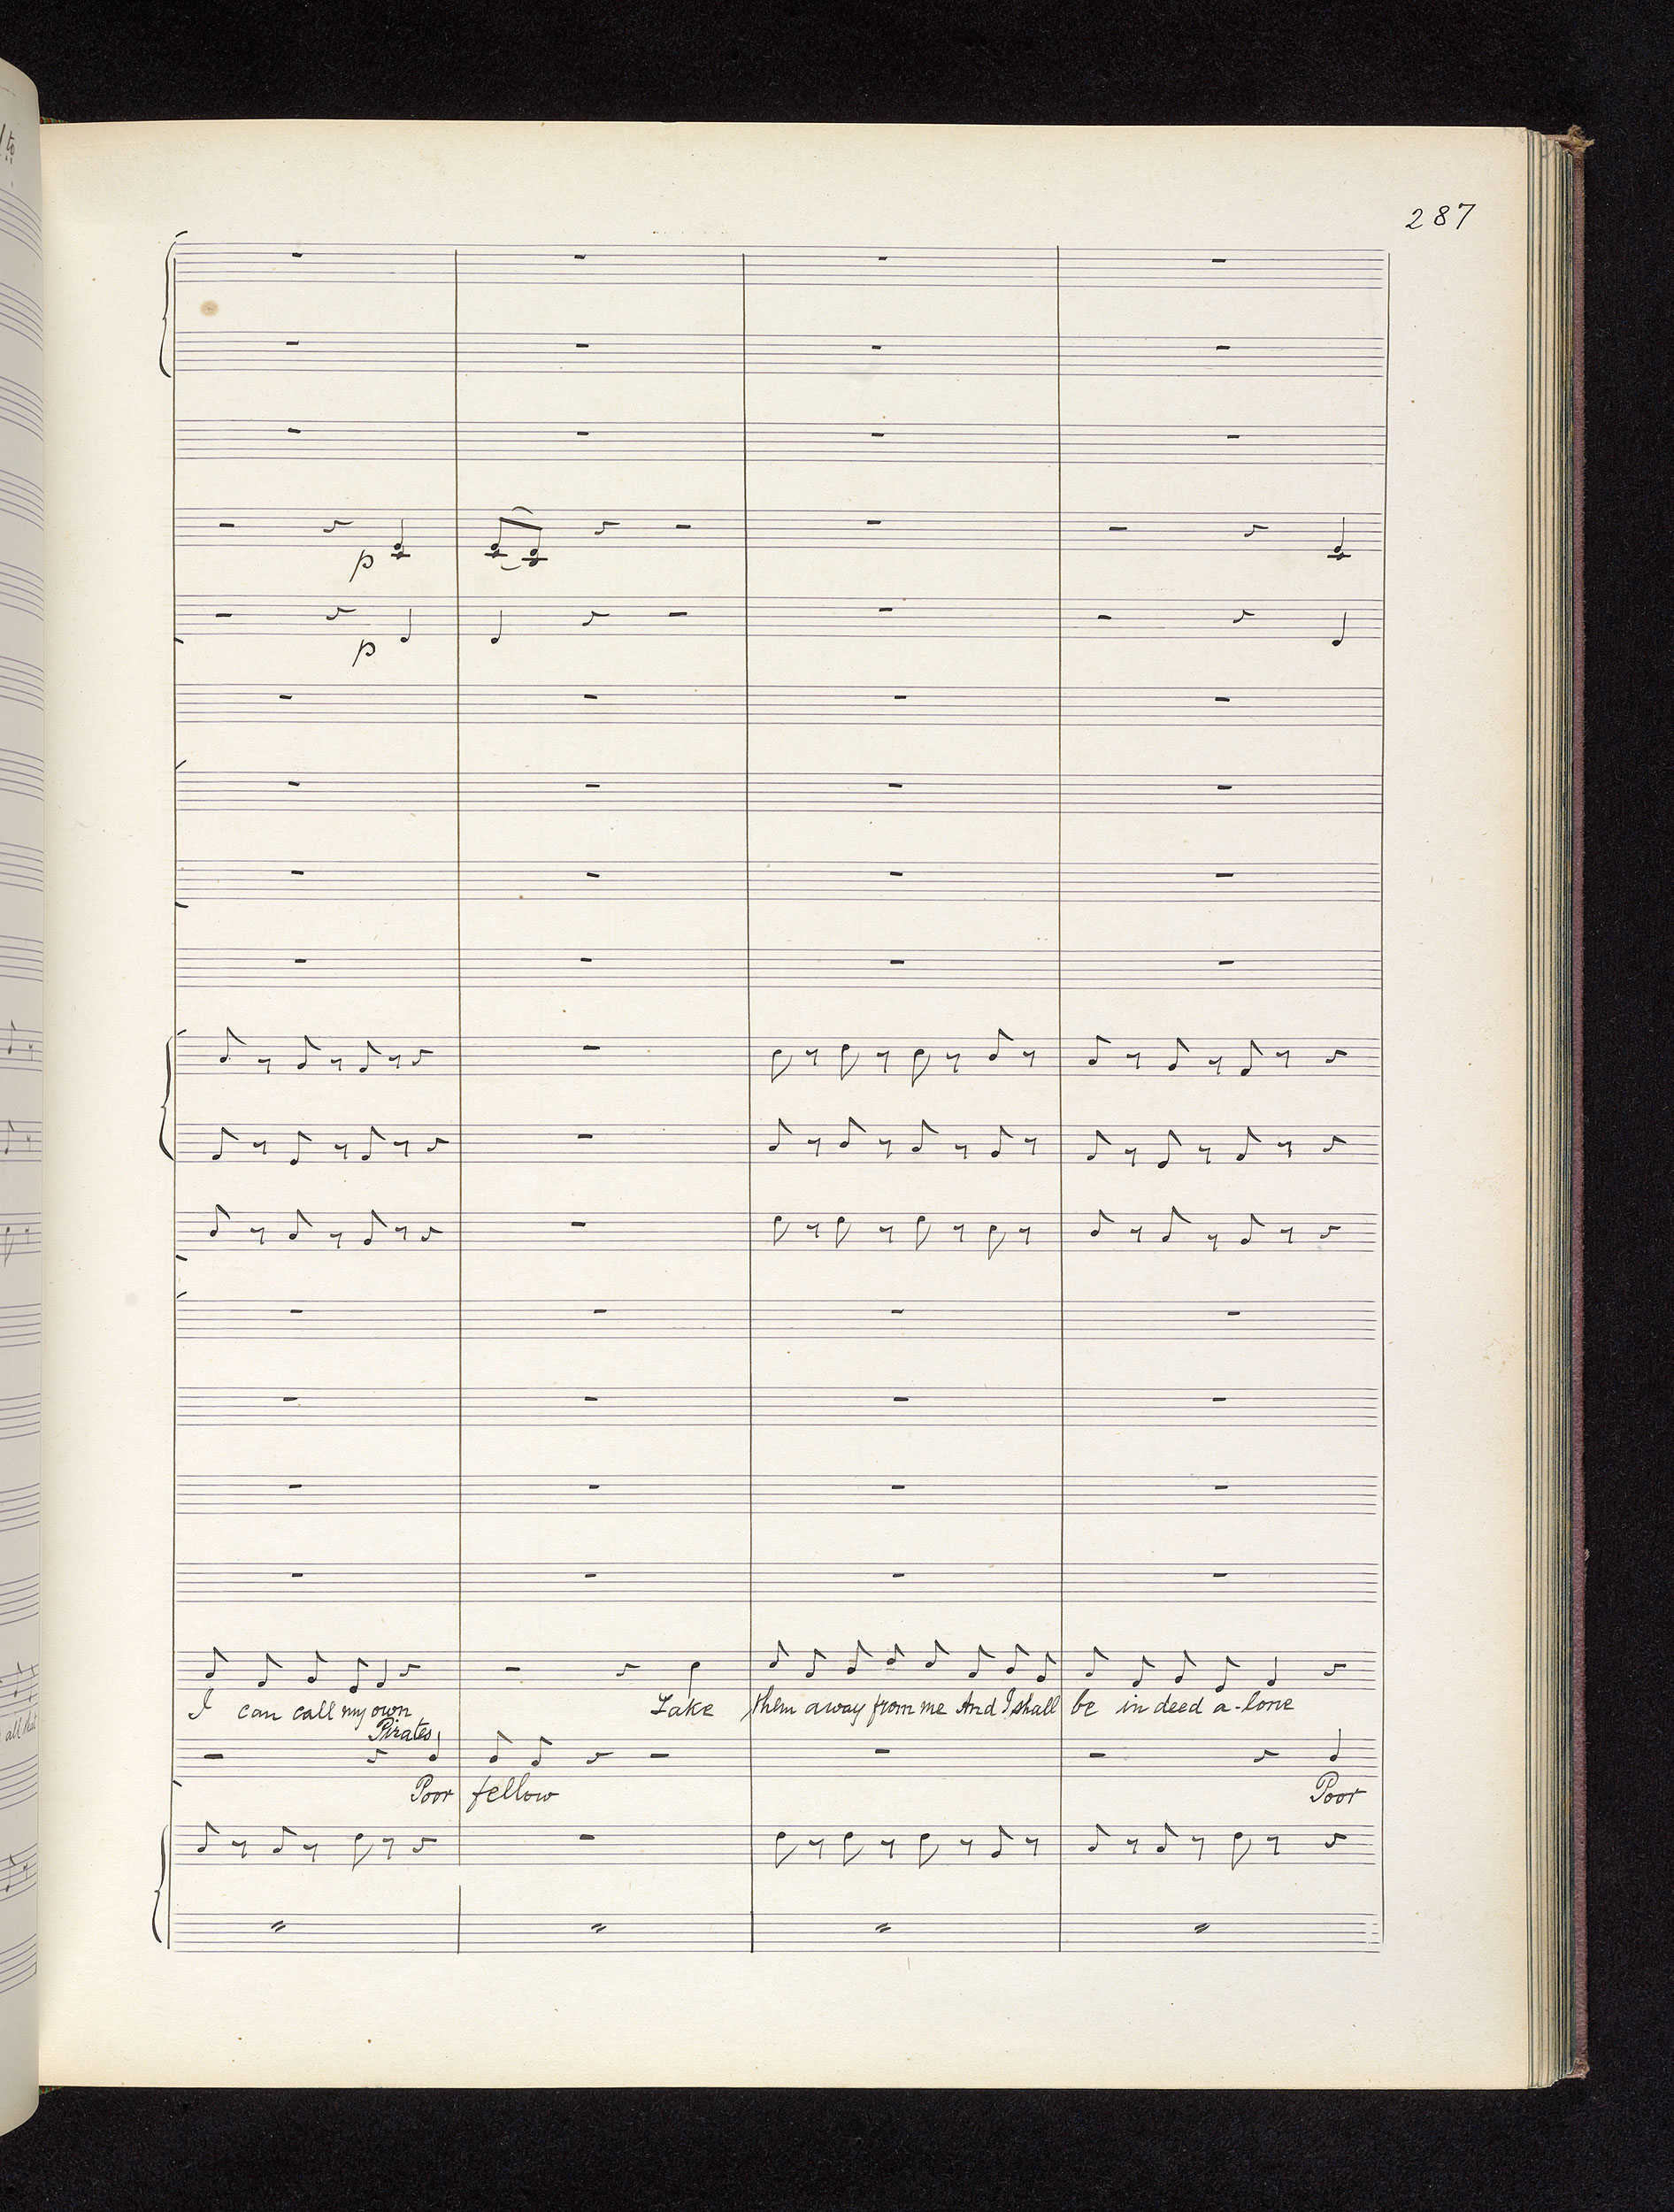 287
p
p
I can call my own Take them away from me And I shall be in deed a-lone
Pirates
Poor fellow Poor
all that